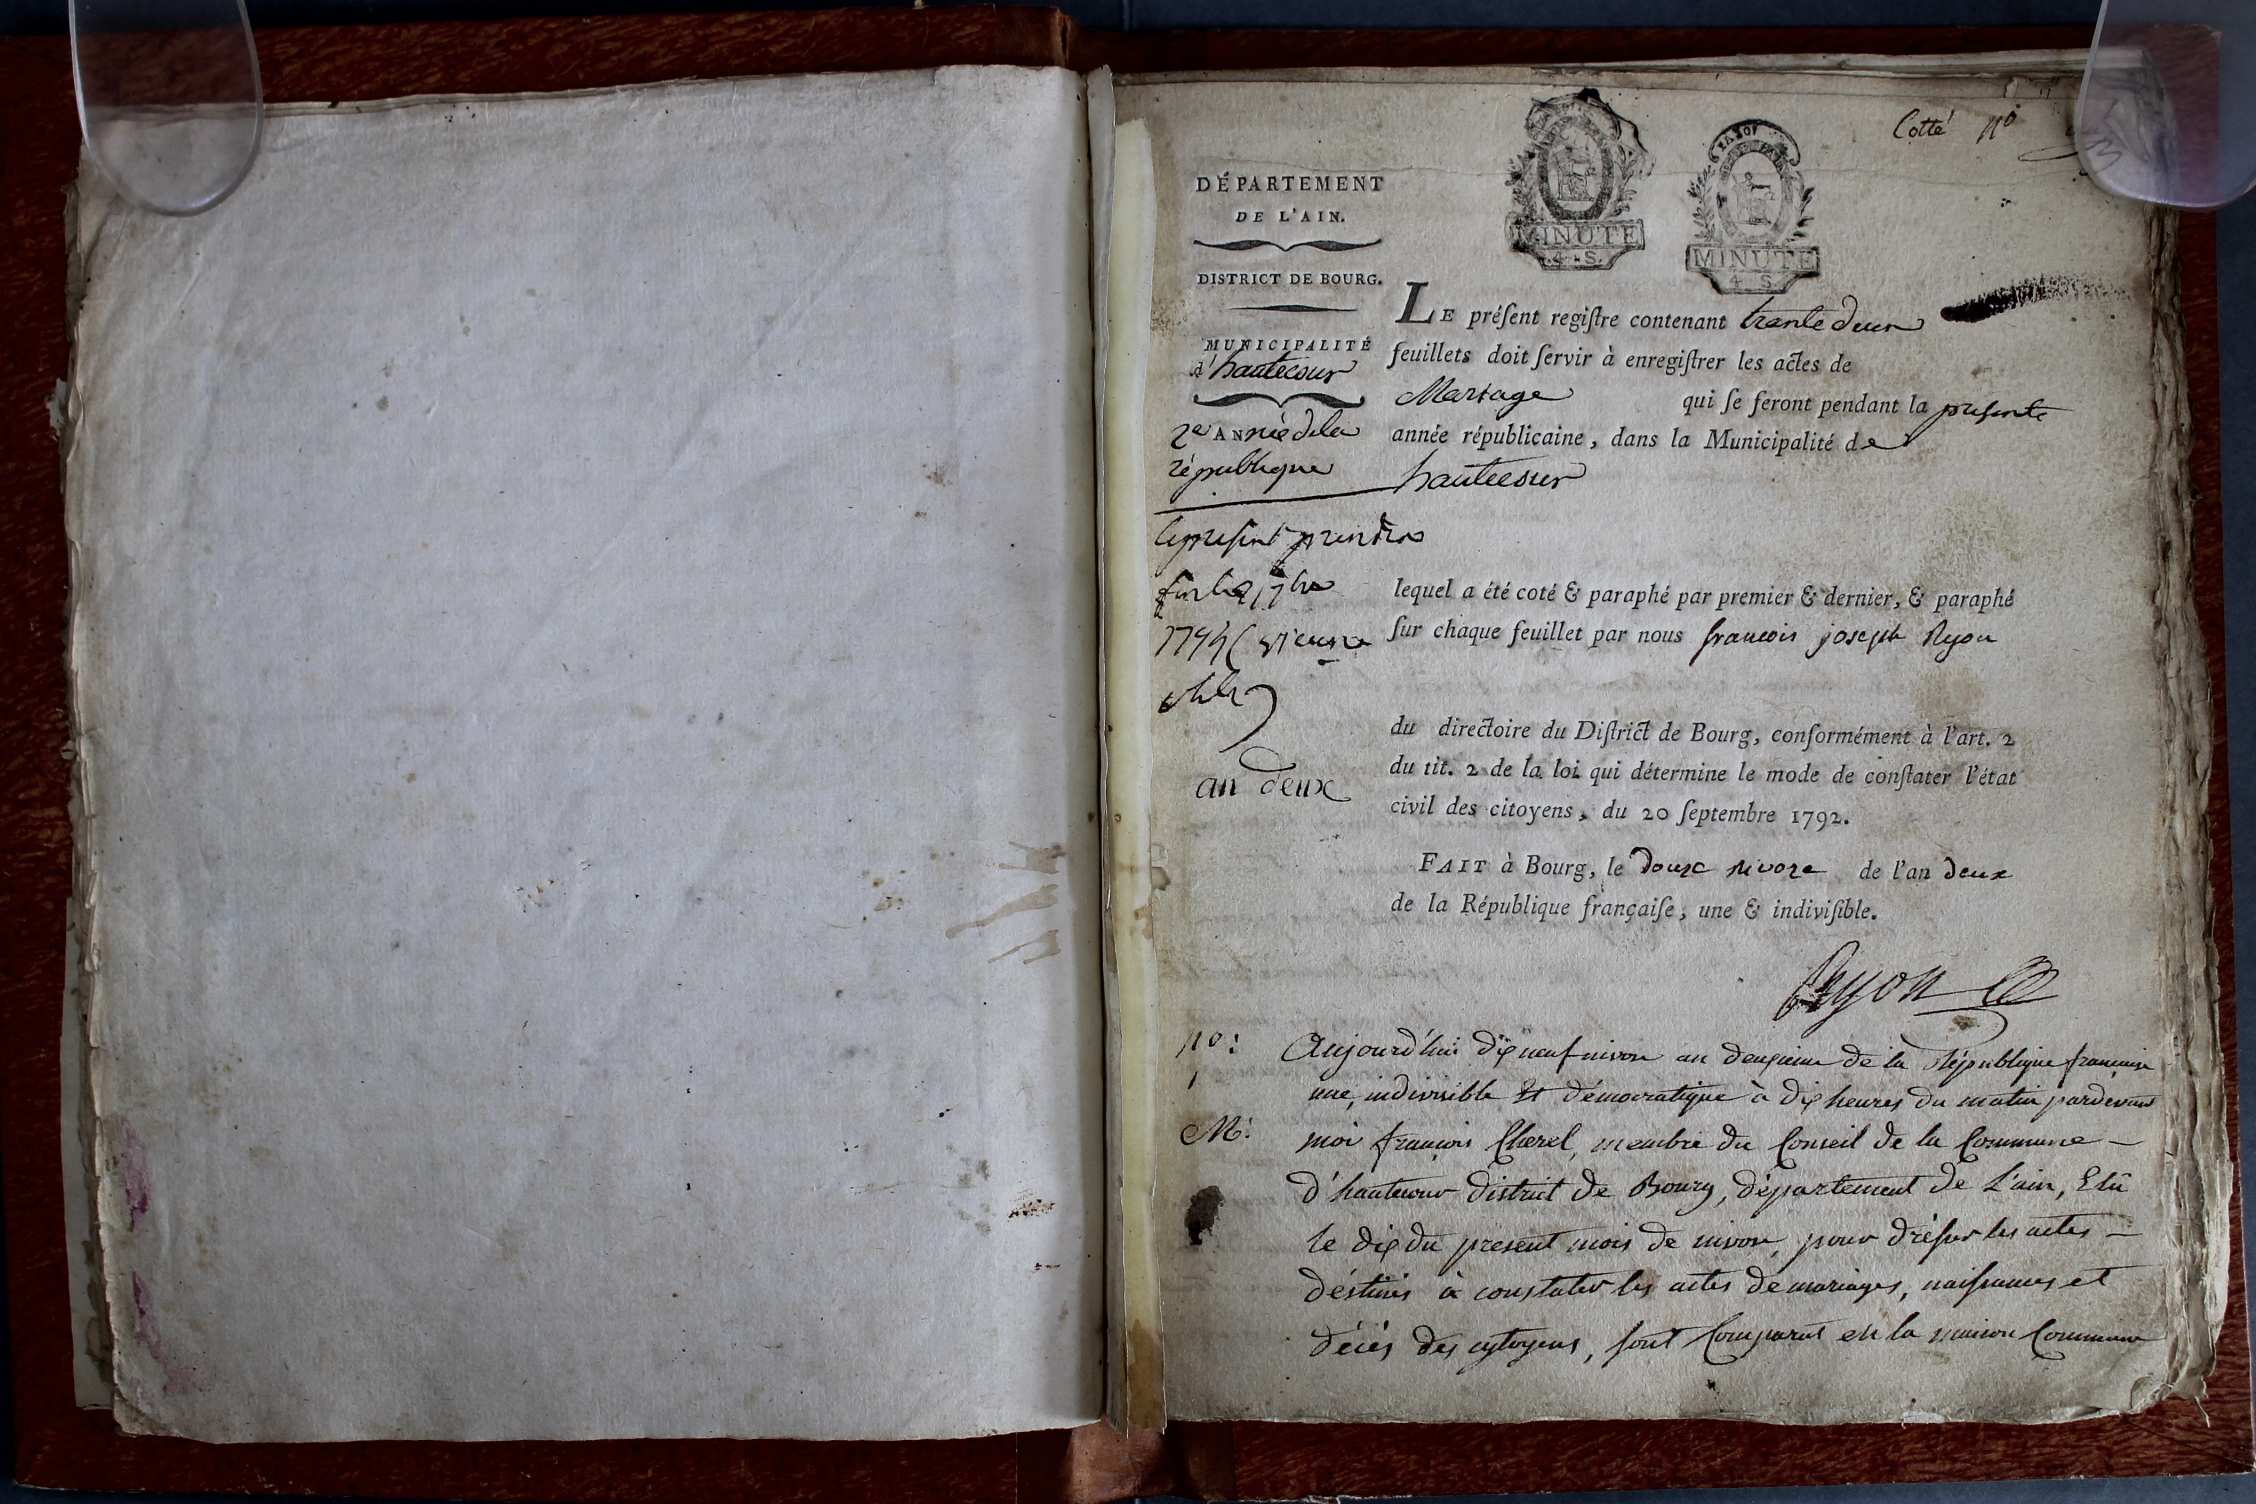 Cotté no
MINUTE
4. S.
MINUTE
4 S
DÉPARTEMENT
DE L'AIN.
DISTRICT DE BOURG.
MUNICIPALITÉ
d'hautecour
2e ANnée de la
république
an deux
LE préſent regiſtre contenant trente deux
feuillets doit ſervir à enregiſtrer les actes de
Mariage qui ſe feront pendant la preſente
année républicaine, dans la Municipalité de
hautecour
lequel a été coté & paraphé par premier & dernier, & paraphé
ſur chaque feuillet par nous francois joseph Ryon
du directoire du Diſtrict de Bourg, conformément à l'art. 2
du tit. 2 de la loi qui détermine le mode de conſtater l'état
civil des citoyens, du 20 ſeptembre 1792.
FAIT à Bourg, le douze nivoze de l'an deux
de la République françaiſe, une & indiviſible.
Ryon
no: 1
M:
Aujourd'hui dix neuf nivose an deuxieme de la République françaisе
une, indivisible Et démocratique à dix heures du matin pardevant
moi françois Cherel, membre du Conseil de la Commune
d'hautecour district de Bourg, département de L'ain, Elû
le dix du present mois de nivose, pour dréſser les actes
déstinés à constater les actes de mariages, naiſsances et
décés des cytoyens, sont Comparus en la maison Commune